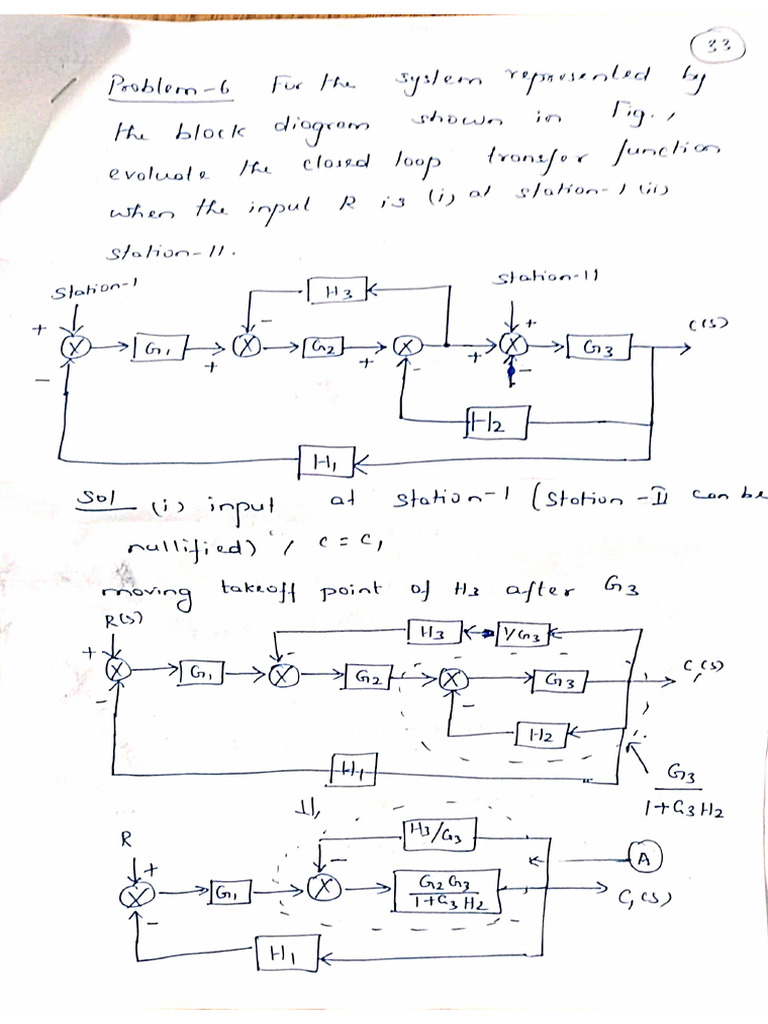 33
Problem-6 For the system represented by
the block diagram shown in Fig.,
evaluate the closed loop transfer function
when the input R is (i) at station-1 (ii)
station-11.
Station-1
Station-11
H3
+
-
+
C(S)
G1
G2
G3
+
+
+
-
-
-
H2
H1
Sol (i) input at station-1 (Station-II can be
nullified) , C = C1
moving takeoff point of H3 after G3
R(S)
H3
1/G3
+
-
G1
G2
G3
C1(S)
-
-
H2
H1
G3
1+G3H2
⇓,
R
H3/G3
A
+
-
G1
G2G3
1+G3H2
C1(S)
-
H1